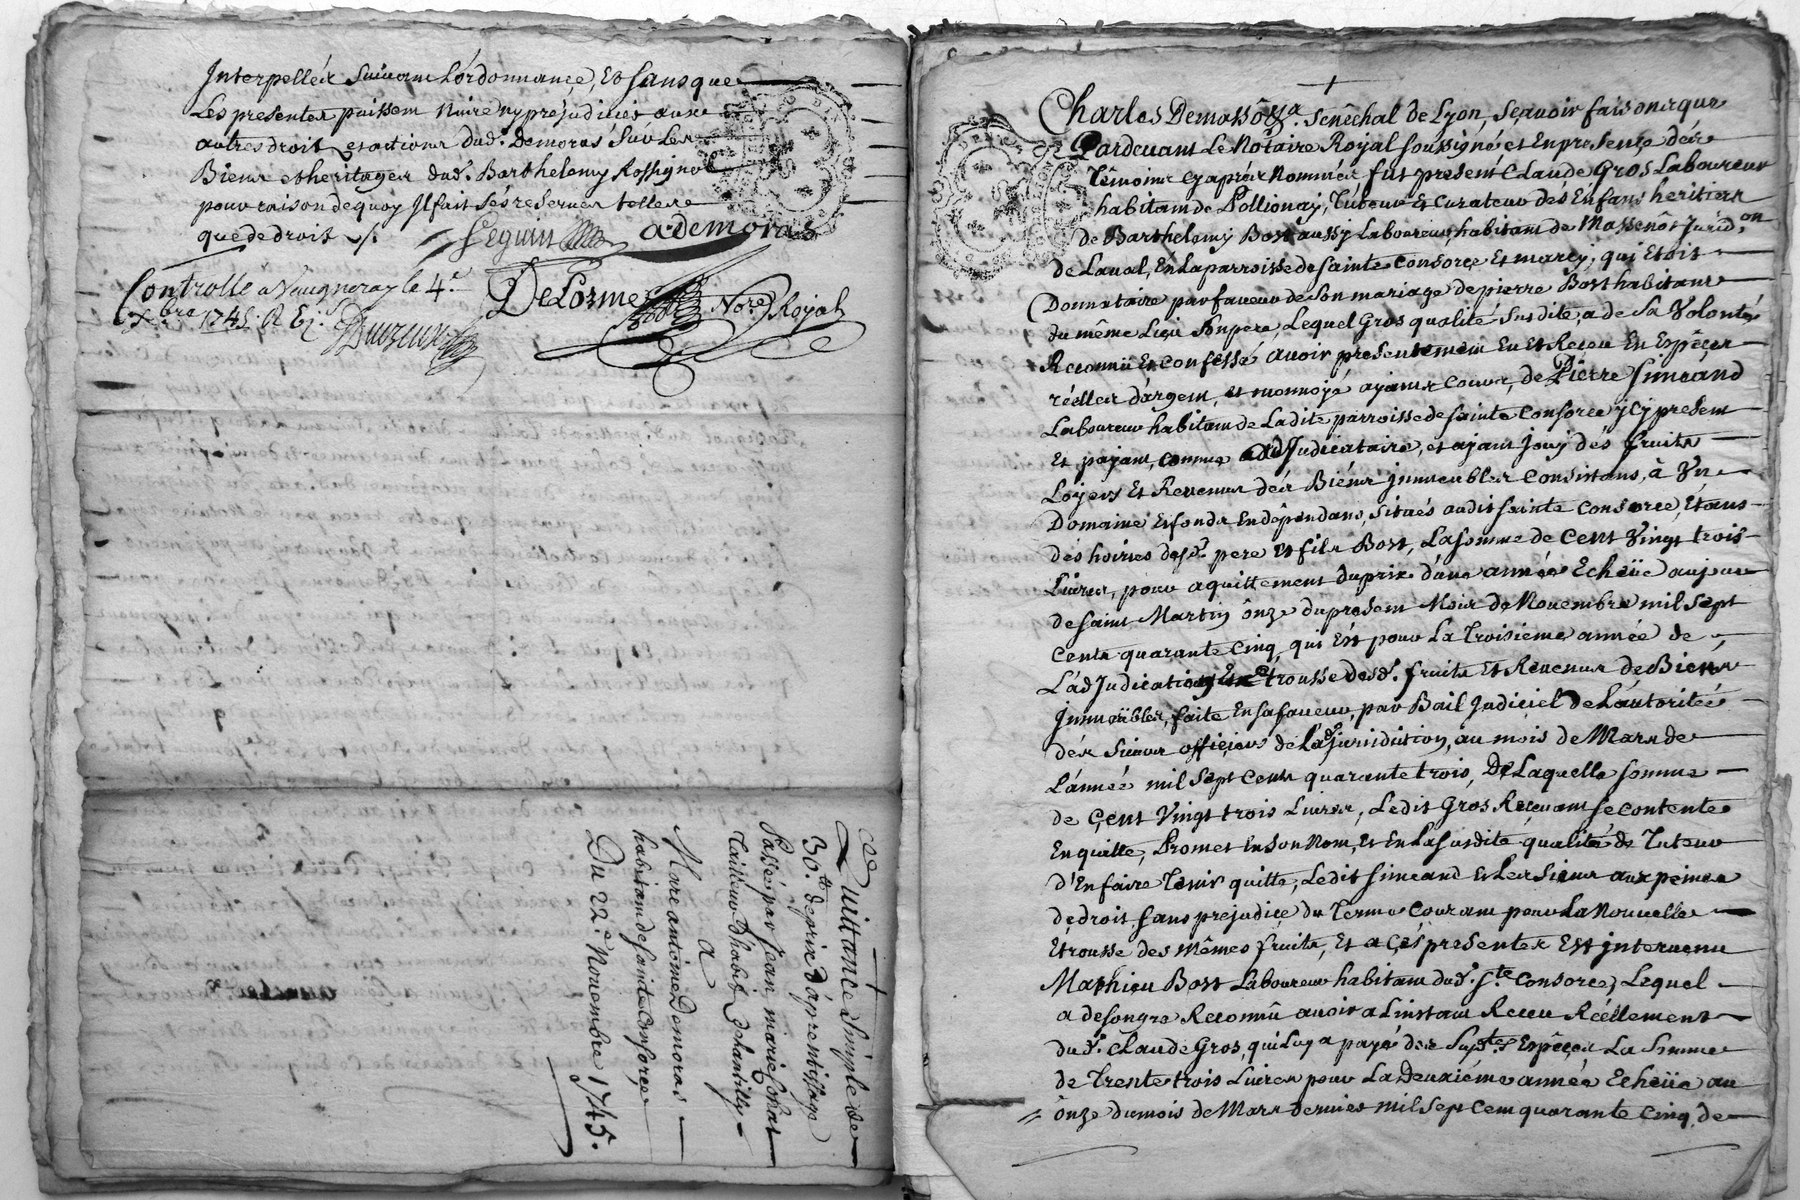 Interpellés suivant L'ordonnance, Et sans que
Les presentes puissent Nuire ny prejudicier aux
autres droits et actions dud.t Demoras Sur Les
Biens et heritages dud.t Barthelemy Rossignol
pour raison de quoy Il fait Ses reserves telles
que de droit ./.
Seguin ademoras
Controllé a Vaugneray le 4.e
DeLorme No.re Royal
x.bre 1745. R
Quittance Simple de
30.tt de prix d'aprentissage
Passée par Jean marie
Tailleur D'habits de chantilly
a
Marc antoine Demoras
habitant de sainte Consorce
Du 22.e Novembre 1745.
Charles Demassô Sénêchal de Lyon, Sçavoir faisons que
Pardevant Le Notaire Royal soussigné et En presence des
Têmoins cy après Nommés fut present Claude Gros Laboureur
habitant de Pollionay, Tuteur et Curateur dés Enfans heritiers
de Barthelemy Bost aussy Laboureur, habitant de Massenôt Jurid.on
de Laval, En La parroisse de sainte Consorce Et marcy, qui Etoit
Donnataire par faveur de son mariage de pierre Bost habitant
du même Lieu Son pere, Lequel Gros qualité Susdite, a de Sa Volonté
Reconnû Et confessé avoir presentement Eu Et Receu En Espêces
réelles d'argent, et monnoyé ayants cours, de Pierre Simeand
Laboureur habitant de Ladite parroisse de sainte Consorce ycy present
Et payant, comme adJudicataire, et ayant Jouy dés fruits
Loyers Et Revenus dés Biéns Jmmeubles Consistans, à Vn
Domaine Et fonds En dépendans, Situés audit sainte Consorce, Etans
des hoiries desd.ts pere et fils Bost, La somme de Cent Vingt trois
Livres, pour aquittement du prix d'une année Echeüe au jour
de saint Martin ônze du present Mois de Novembre mil sept
Cents quarante Cinq, qui Est pour La Troisième année de
L'adJudication Et êtrousse desd.ts fruits Et Revenus de Biéns
Jmmeübles, faite En sa faveur, par Bail Judiciel de L'autorité
dés Sieurs officiers de Lad.e jurisdiction, au mois de Mars de
L'année mil sept Cents quarante trois, De Laquelle somme
de Çent Vingt trois Livres, Ledit Gros Recevant se contente
En quitte, Promet En son Nom, Et En La susdite qualité de Tuteur
d'En faire Tenir quitte, Ledit Simeand et Les Siens aux peines
de droit, sans prejudice du Terme Courant pour La Nouvelle
Etrousse des mêmes fruits, Et a Çés presentes Est jntervenu
Mathieu Bost Laboureur habitant dud.t S.te Consorce, Lequel
a de son gre Reconnû avoir a L'instant Receu Réellement
dud.t Claude Gros, qui Luy a payé des Susd.tes Espêces La Somme
de Trente trois Livres pour La Deuxiéme année Echeüe au
ônze du mois de Mars dernier mil sept Cent quarante Cinq, de